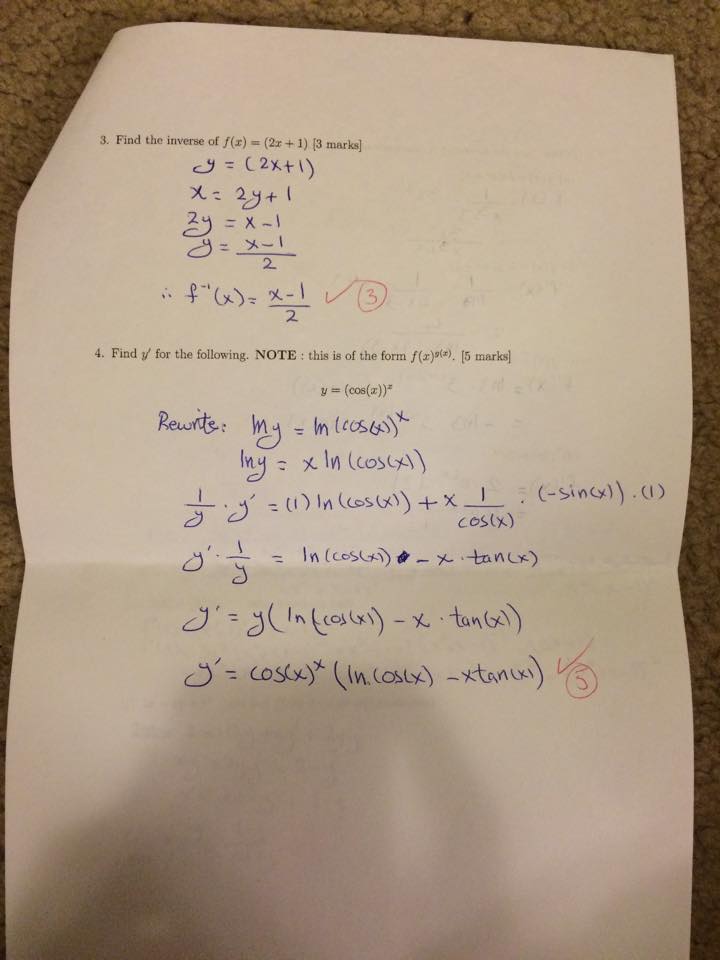 3. Find the inverse of f(x) = (2x + 1) [3 marks]
y = (2x+1)
x = 2y+1
2y = x-1
y = x-1/2
∴ f⁻¹(x) = x-1/2 ✓ 3
4. Find y′ for the following. NOTE : this is of the form f(x)^g(x). [5 marks]
y = (cos(x))^x
Rewrite: lny = ln(cos(x))^x
lny = x ln(cos(x))
1/y · y' = (1) ln(cos(x)) + x 1/cos(x) · (-sin(x)) · (1)
y' · 1/y = ln(cos(x)) - x · tan(x)
y' = y(ln(cos(x)) - x · tan(x))
y' = cos(x)^x (ln.cos(x) - xtan(x)) ✓ 5